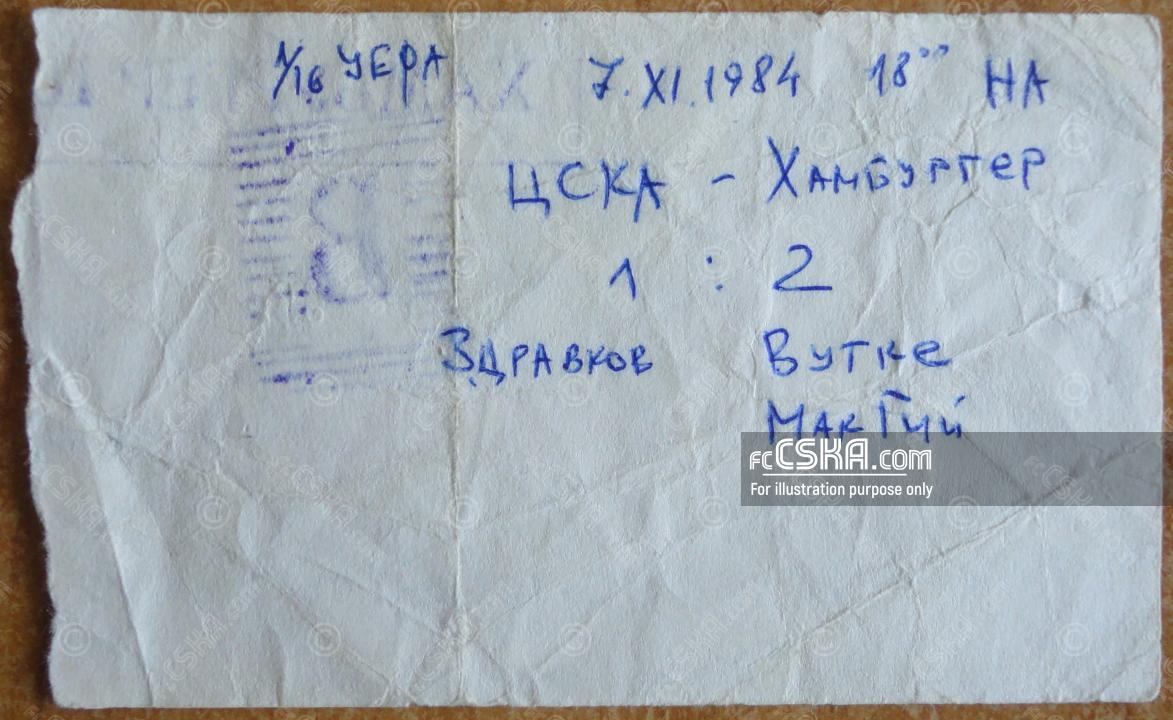 1/16 УЕФА 7.XI.1984 18°° НА
ЦСКА - Хамбургер
1 : 2
Здравков Вутке
МакГий
fcCSKA.com
For illustration purpose only